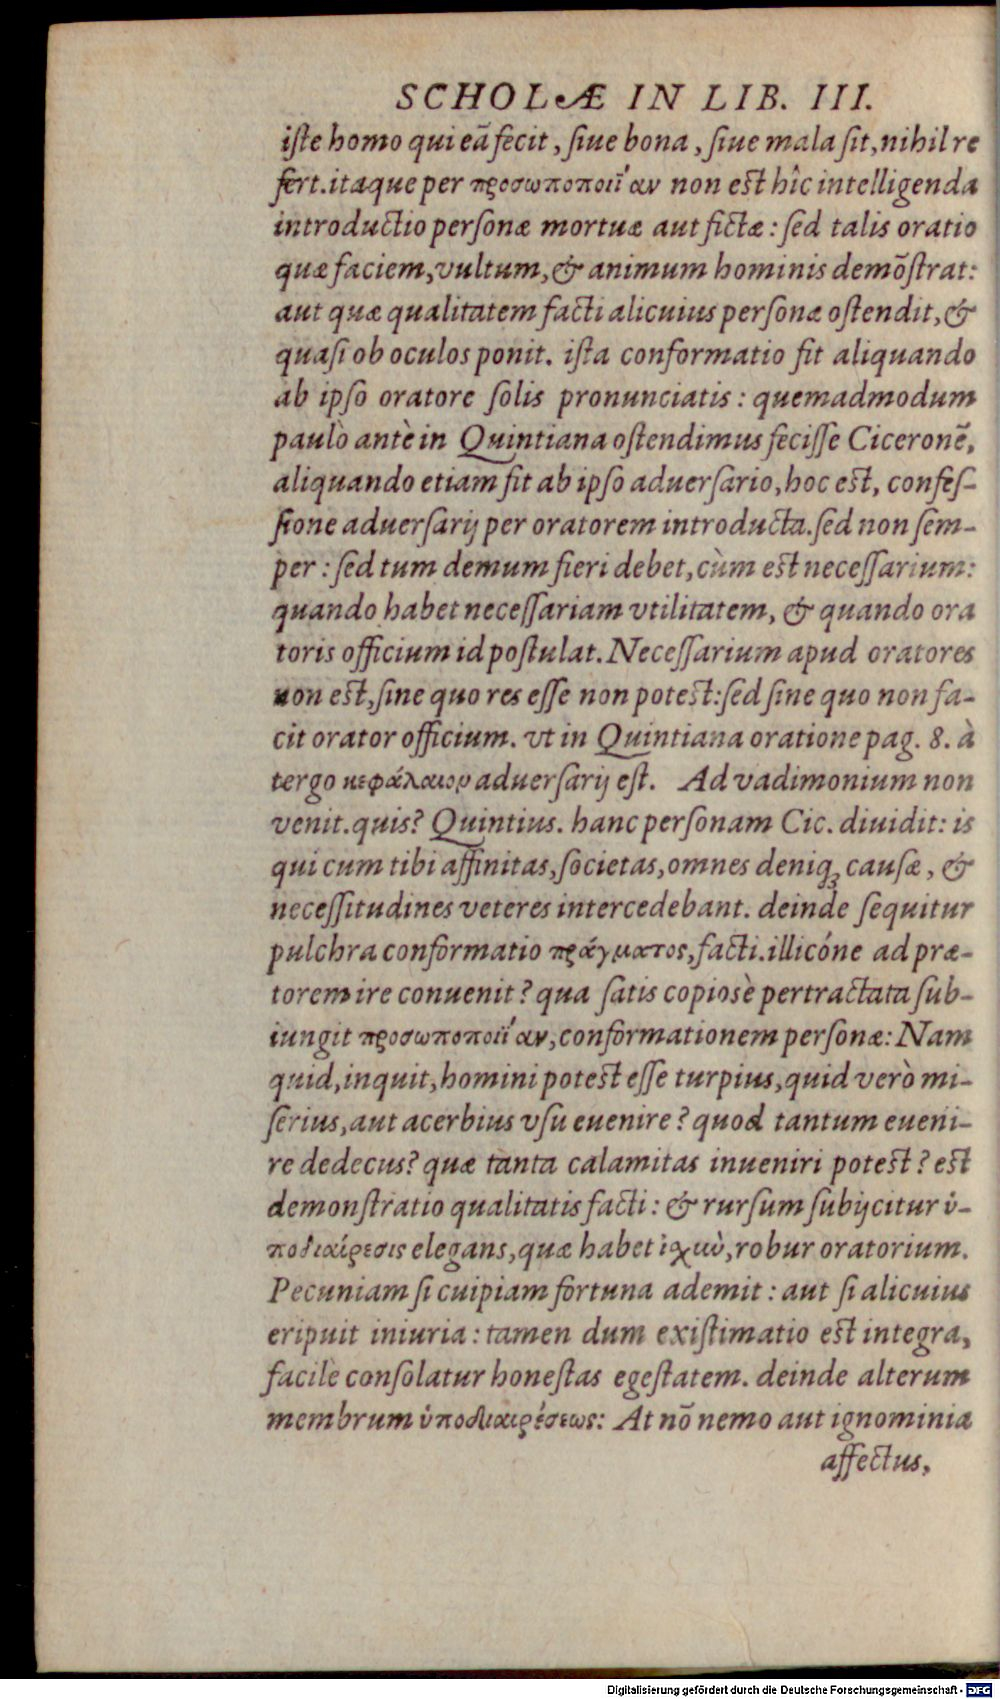 SCHOLÆ IN LIB. III.
iſte homo qui eã fecit, ſiue bona, ſiue mala ſit, nihil re
fert. itaque per προσωποποιΐαν non eſt hîc intelligenda
introductio perſonæ mortuæ aut fictæ: ſed talis oratio
quæ faciem, vultum, & animum hominis demõſtrat:
aut quæ qualitatem facti alicuius perſonæ oſtendit, &
quaſi ob oculos ponit. iſta conformatio fit aliquando
ab ipſo oratore ſolis pronunciatis: quemadmodum
paulò antè in Quintiana oſtendimus feciſſe Ciceronẽ,
aliquando etiam fit ab ipſo aduerſario, hoc eſt, confeſ-
ſione aduerſarij per oratorem introducta. ſed non ſem-
per: ſed tum demum fieri debet, cùm eſt neceſſarium:
quando habet neceſſariam vtilitatem, & quando ora
toris officium id poſtulat. Neceſſarium apud oratores
non eſt, ſine quo res eſſe non poteſt: ſed ſine quo non fa-
cit orator officium. vt in Quintiana oratione pag. 8. à
tergo κεφάλαιον aduerſarij eſt. Ad vadimonium non
venit. quis? Quintius. hanc perſonam Cic. diuidit: is
qui cum tibi affinitas, ſocietas, omnes deniq; cauſæ, &
neceſſitudines veteres intercedebant. deinde ſequitur
pulchra conformatio πράγματος, facti. illicóne ad præ-
torem ire conuenit? qua ſatis copioſè pertractata ſub-
iungit προσωποποιΐαν, conformationem perſonæ: Nam
quid, inquit, homini poteſt eſſe turpius, quid verò mi-
ſerius, aut acerbius vſu euenire? quod tantum eueni-
re dedecus? quæ tanta calamitas inueniri poteſt? eſt
demonſtratio qualitatis facti: & rurſum ſubijcitur ὑ-
ποδιαίρεσις elegans, quæ habet ἰχιὺ, robur oratorium.
Pecuniam ſi cuipiam fortuna ademit: aut ſi alicuius
eripuit iniuria: tamen dum exiſtimatio eſt integra,
facilè conſolatur honeſtas egeſtatem. deinde alterum
membrum ὑποδιαιρέσεως: At nõ nemo aut ignominia
affectus,
Digitalisierung gefördert durch die Deutsche Forschungsgemeinschaft - DFG